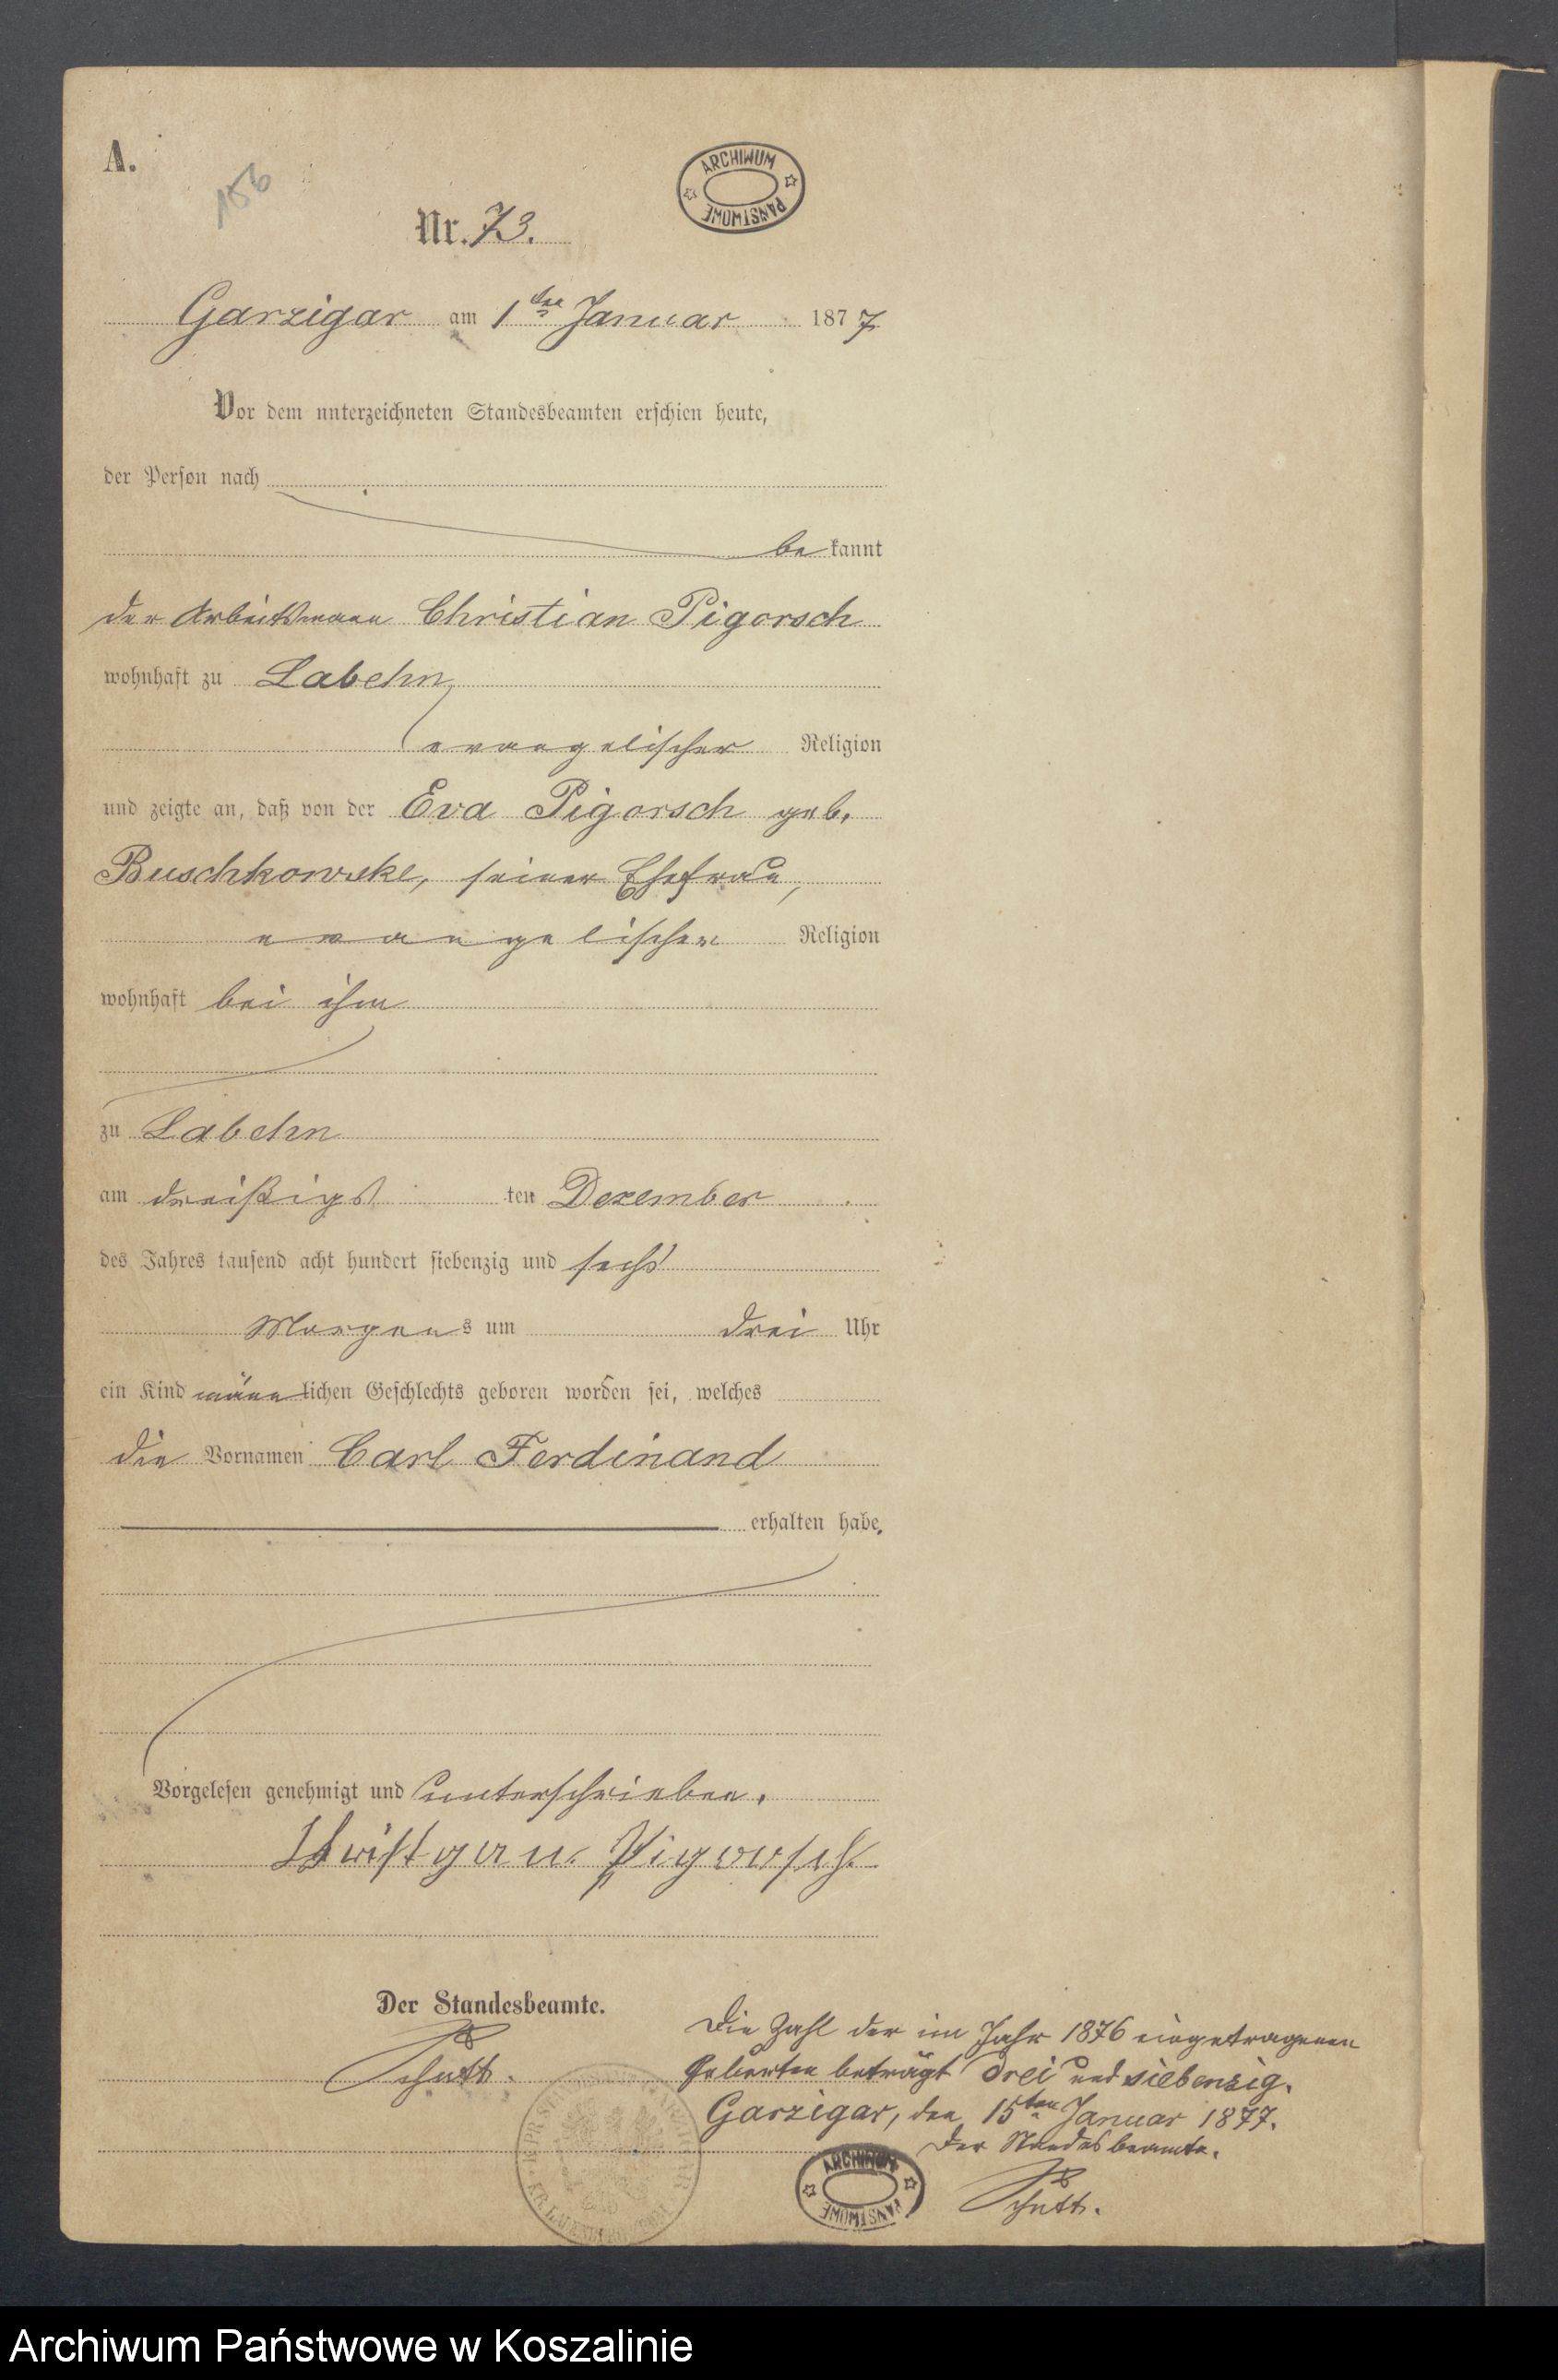 A.
156
ARCHIWUM PAŃSTWOWE
Nr. 73.
Garzigar am 1ten Januar 1877
Vor dem unterzeichneten Standesbeamten erschien heute,
der Person nach
bekannt
der Arbeitsmann Christian Pigorsch
wohnhaft zu Labehn
evangelischer Religion
und zeigte an, daß von der Eva Pigorsch geb.
Buschkowske, seiner Ehefrau,
evangelischer Religion
wohnhaft bei ihm
zu Labehn
am dreißigsten Dezember
des Jahres tausend acht hundert siebenzig und sechs
Morgens um drei Uhr
ein Kind männlichen Geschlechts geboren worden sei, welches
die Vornamen Carl Ferdinand
erhalten habe.
Vorgelesen genehmigt und unterschrieben.
Christyan Pigorsch.
Der Standesbeamte.
Die Zahl der im Jahr 1876 eingetragenen
Geburten beträgt drei und siebenzig.
Garzigar, den 15ten Januar 1877.
Der Standesbeamte.
ARCHIWUM PAŃSTWOWE
Archiwum Państwowe w Koszalinie